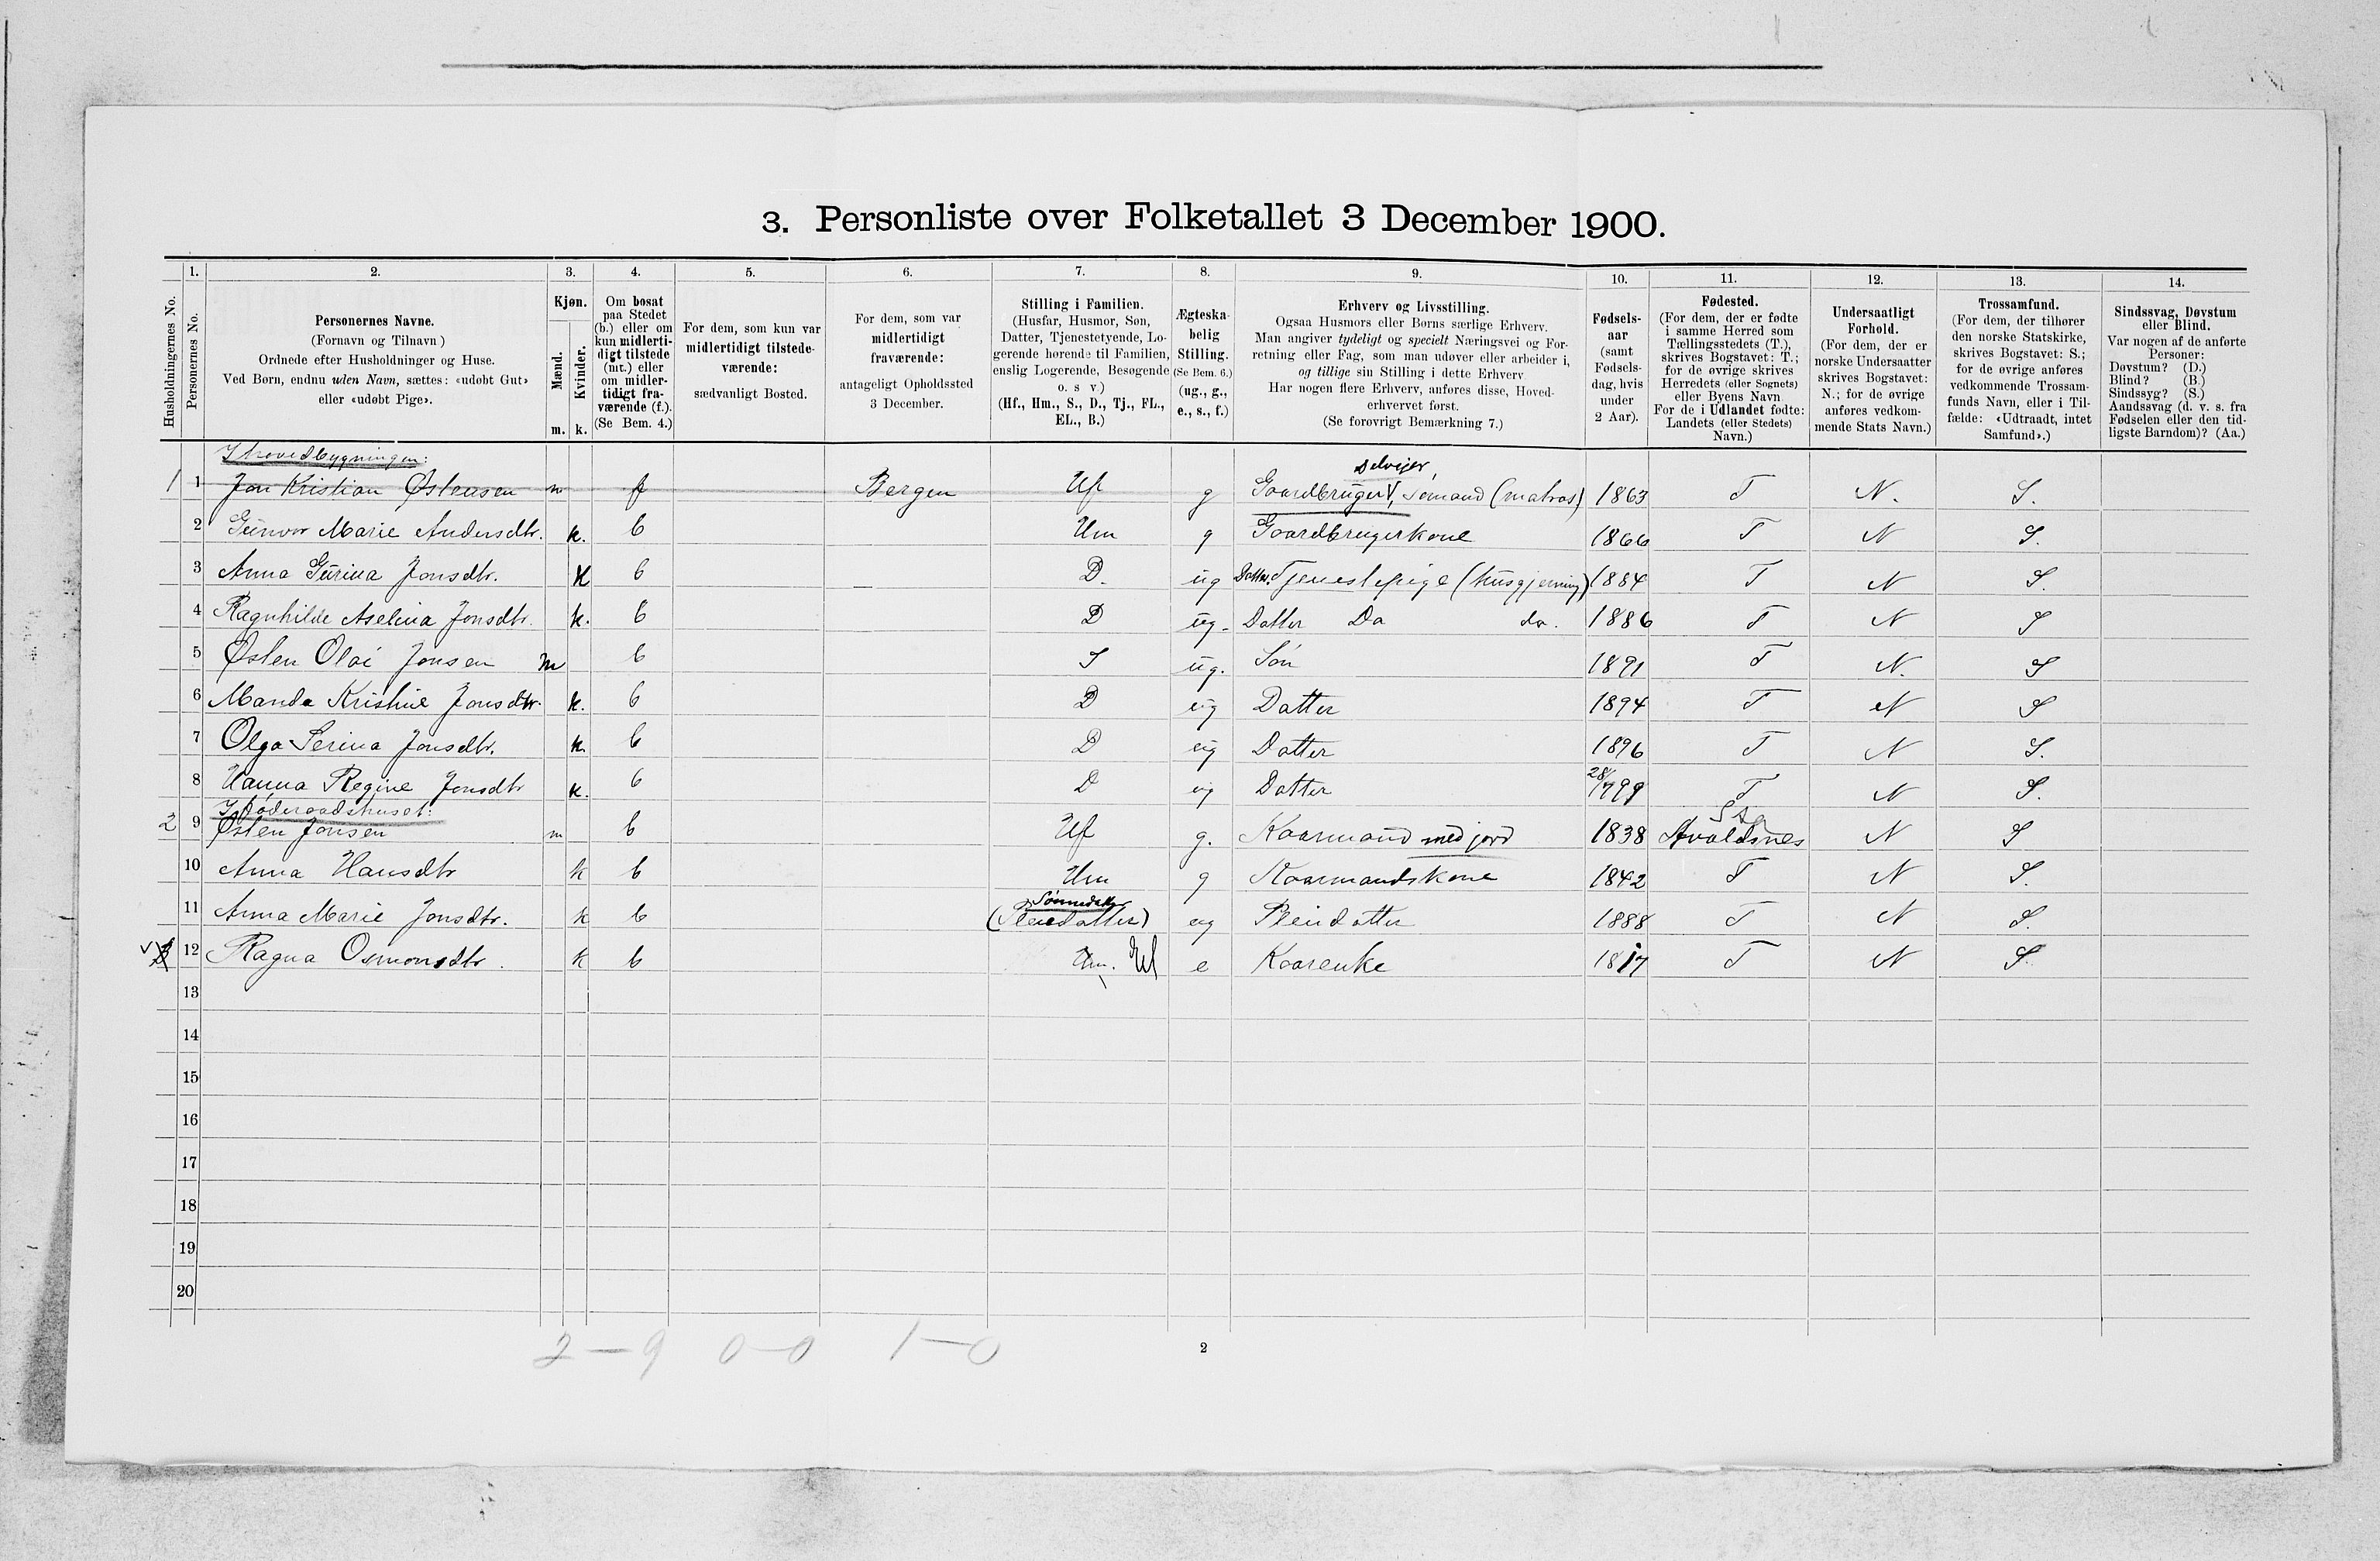 3. Personliste over Folketallet 3 December 1900.
1. 2. 3. 4. 5. 6. 7. 8. 9. 10. 11. 12. 13. 14.
Husholdningernes No.
Personernes No.
Personernes Navne.
(Fornavn og Tilnavn)
Ordnede efter Husholdninger og Huse.
Ved Børn, endnu uden Navn, sættes: «udøbt Gut»
eller «udøbt Pige».
Kjøn.
Mænd.
Kvinder.
m. k.
Om bosat
paa Stedet
(b.) eller om
kun midlerti-
digt tilstede
(mt.) eller
om midler-
tidigt fra-
værende (f.).
(Se Bem. 4.)
For dem, som kun var
midlertidigt tilstede-
værende:
sædvanligt Bosted.
For dem, som var
midlertidigt
fraværende:
antageligt Opholdssted
3 December.
Stilling i Familien.
(Husfar, Husmor, Søn,
Datter, Tjenestetyende, Lo-
gerende hørende til Familien,
enslig Logerende, Besøgende
o. s v.)
(Hf., Hm., S., D., Tj., FL.,
EL., B.)
Ægteska-
belig
Stilling.
(Se Bem. 6.)
(ug., g.,
e., s., f.)
Erhverv og Livsstilling.
Ogsaa Husmors eller Børns særlige Erhverv.
Man angiver tydeligt og specielt Næringsvei og For-
retning eller Fag, som man udøver eller arbeider i,
og tillige sin Stilling i dette Erhverv
Har nogen flere Erhverv, anføres disse, Hoved-
erhvervet først.
(Se forøvrigt Bemærkning 7.)
Fødsels-
aar
(samt
Fødsels-
dag, hvis
under
2 Aar).
Fødested.
(For dem, der er fødte
i samme Herred som
Tællingsstedets (T.),
skrives Bogstavet: T.;
for de øvrige skrives
Herredets (eller Sognets)
eller Byens Navn
For de i Udlandet fødte:
Landets (eller Stedets)
Navn.)
Undersaatligt
Forhold.
(For dem, der er
norske Undersaatter
skrives Bogstavet:
N.; for de øvrige
anføres vedkom-
mende Stats Navn.)
Trossamfund.
(For dem, der tilhører
den norske Statskirke,
skrives Bogstavet: S.;
for de øvrige anføres
vedkommende Trossam-
funds Navn, eller i Til-
fælde: «Udtraadt, intet
Samfund».)
Sindssvag, Døvstum
eller Blind.
Var nogen af de anførte
Personer:
Døvstum? (D.)
Blind? (B.)
Sindssyg? (S.)
Aandssvag (d. v. s. fra
Fødselen eller den tid-
ligste Barndom)? (Aa.)
I hovedbygningen:
Selvejer
1 1 Jon Kristian Østensen m f Bergen Hf g Gaardbruger, Sømand (matros) 1863 T N. S.
2 Gunvor Marie Andersdtr. k. b Hm g Gaardbrugerkone 1866 T N S.
3 Anna Gurina Jonsdtr. K b D. ug Datter. Tjenestepige (husgjerning) 1884 T N S.
4 Ragnhilde Aselina Jonsdtr. k. b D ug. Datter Do do. 1886 T N S
5 Østen Olai Jonsen m b S ug. Søn 1891 T N. S
6 Manda Kristine Jonsdtr. k. b D ug Datter 1894 T N S
7 Olga Serina Jonsdtr. k. b D ug Datter 1896 T N S.
8 Hanna Regine Jonsdtr k. b D ug Datter 28/7 99 T N S.
I Føderaadshuset:
2 9 Østen Jonsen m b Hf g. Kaarmand med jord 1838 Avaldsnes N S
10 Anna Hansdtr k b Hm g Kaarmandskone 1842 T N S.
Sønnedatter
11 Anna Marie Jonsdtr. k b (Pleiedatter) ug Pleiedatter 1888 T N S.
12 Ragna Osmonsdtr. k b Hm. El e Kaarenke 1817 T N S
13
14
15
16
17
18
19
20
2–9 0–0 1–0
2